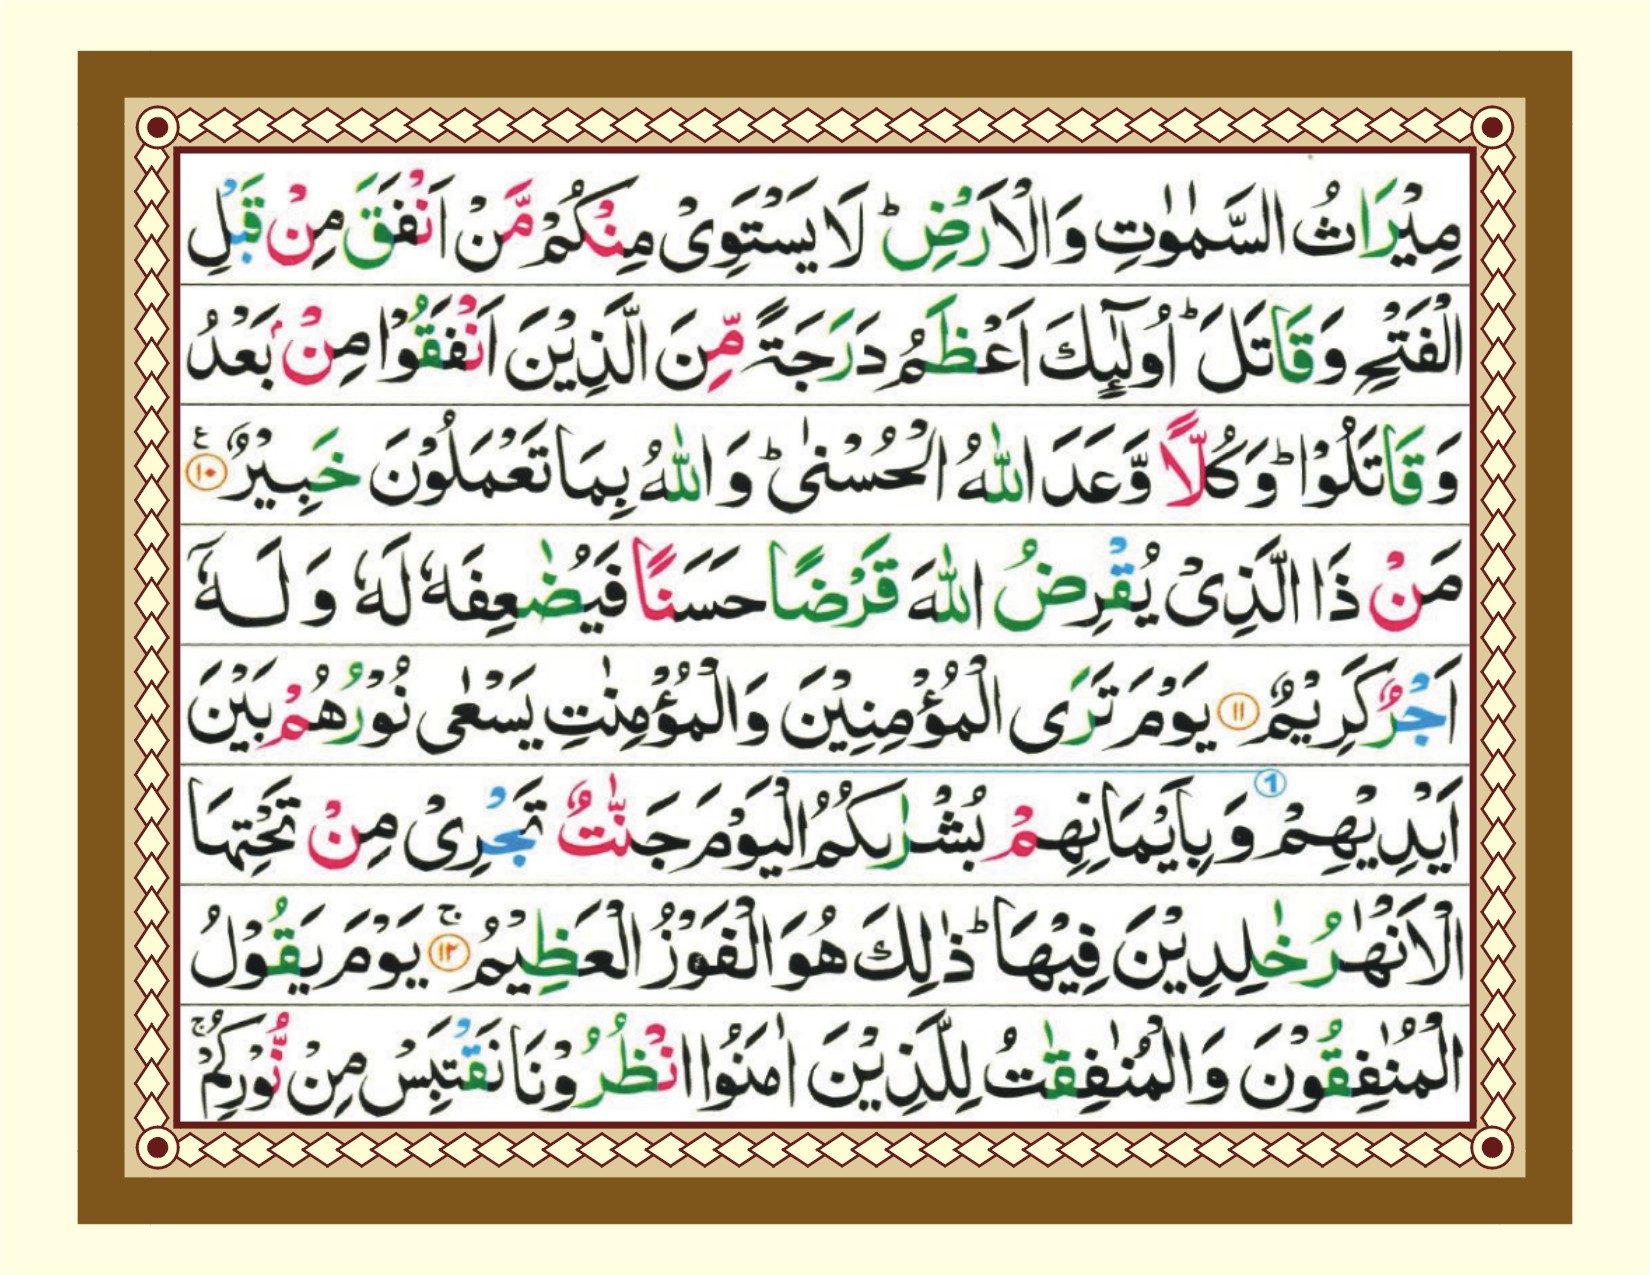 مِيْرَاثُ السَّمٰوٰتِ وَالْاَرْضِ ؕ لَا يَسْتَوِىْ مِنْكُمْ مَّنْ اَنْفَقَ مِنْ قَبْلِ
الْفَتْحِ وَقَاتَلَ ؕ اُولٰٓئِكَ اَعْظَمُ دَرَجَةً مِّنَ الَّذِيْنَ اَنْفَقُوْا مِنْۢ بَعْدُ
وَقَاتَلُوْا ؕ وَكُلًّا وَّعَدَ اللّٰهُ الْحُسْنٰى ؕ وَاللّٰهُ بِمَا تَعْمَلُوْنَ خَبِيْرٌ ع ۱۰
مَنْ ذَا الَّذِىْ يُقْرِضُ اللّٰهَ قَرْضًا حَسَنًا فَيُضٰعِفَهٗ لَهٗ وَلَهٗۤ
اَجْرٌ كَرِيْمٌ ۱۱ يَوْمَ تَرَى الْمُؤْمِنِيْنَ وَالْمُؤْمِنٰتِ يَسْعٰى نُوْرُهُمْ بَيْنَ
اَيْدِيْهِمْ وَبِاَيْمَانِهِمْ بُشْرٰىكُمُ الْيَوْمَ جَنّٰتٌ تَجْرِىْ مِنْ تَحْتِهَا
الْاَنْهٰرُ خٰلِدِيْنَ فِيْهَا ؕ ذٰلِكَ هُوَ الْفَوْزُ الْعَظِيْمُ ۚ ۱۲ يَوْمَ يَقُوْلُ
الْمُنٰفِقُوْنَ وَالْمُنٰفِقٰتُ لِلَّذِيْنَ اٰمَنُوا انْظُرُوْنَا نَقْتَبِسْ مِنْ نُّوْرِكُمْ ۚ